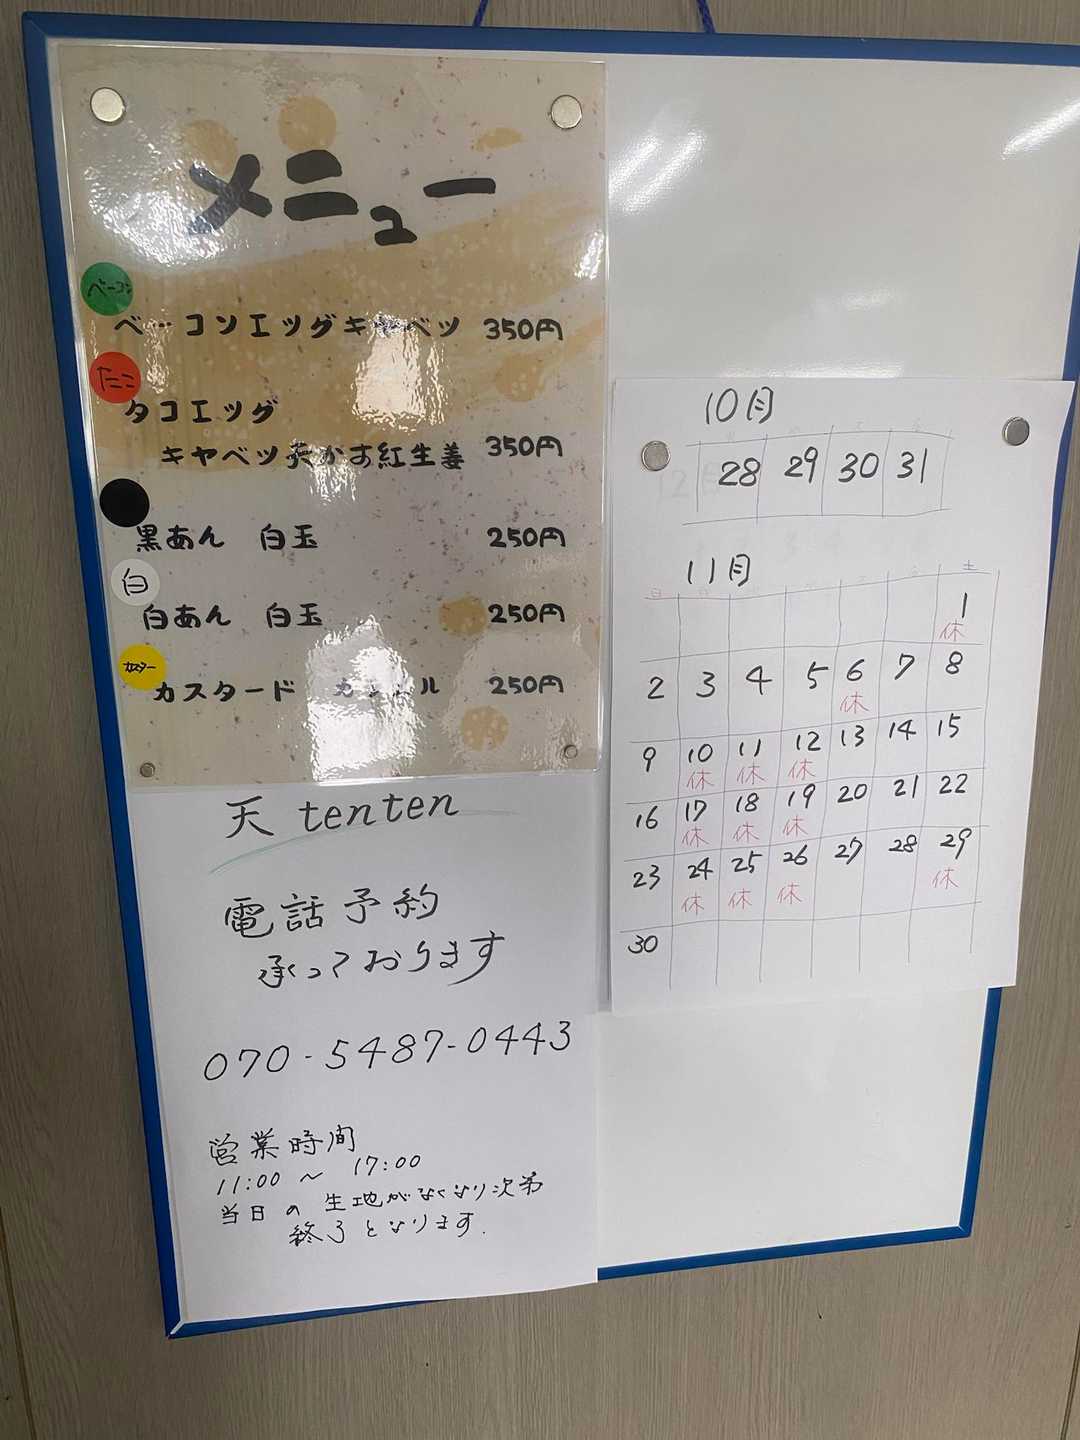 メニュー
ベーコン
ベーコンエッグキャベツ 350円
たこ
タコエッグ
キャベツ天かす紅生姜 350円
黒あん 白玉 250円
白
白あん 白玉 250円
カスター
カスタード 250円
天 tenten
電話予約
承っております
070-5487-0443
営業時間
11:00 ~ 17:00
当日の生地がなくなり次第
終了となります.
10月
28 29 30 31
11月
日 土
1
休
2 3 4 5 6 7 8
休
9 10 11 12 13 14 15
休 休 休
16 17 18 19 20 21 22
休 休 休
23 24 25 26 27 28 29
休 休 休 休
30